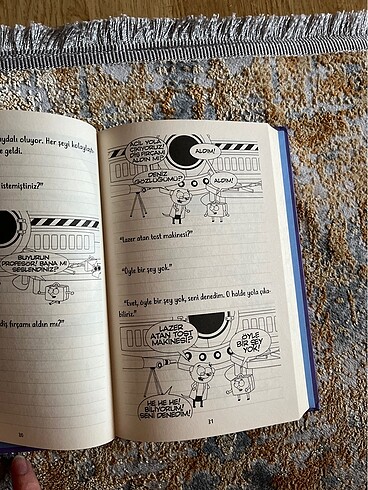 aydalı oluyor. Her şeyi kolaylaştı-
e geldi.
istemiştiniz?"
BUYURUN
PROFESÖR! BANA MI
SESLENDİNİZ?
diş fırçamı aldın mı?"
30
ACİL YOLA
ÇIKIYORUZ!
DİŞ FIRÇAMI
ALDIN MI?
ALDIM!
DENİZ
GÖZLÜĞÜMÜ?
ALDIM!
"Lazer atan tost makinesi?"
"Öyle bir şey yok."
"Evet, öyle bir şey yok, seni denedim. O halde yola çıka-
biliriz."
LAZER
ATAN TOST
MAKİNESİ?
ÖYLE
BİR ŞEY
YOK!
HE HE HE!
BİLİYORUM,
SENİ DENEDİM!
31